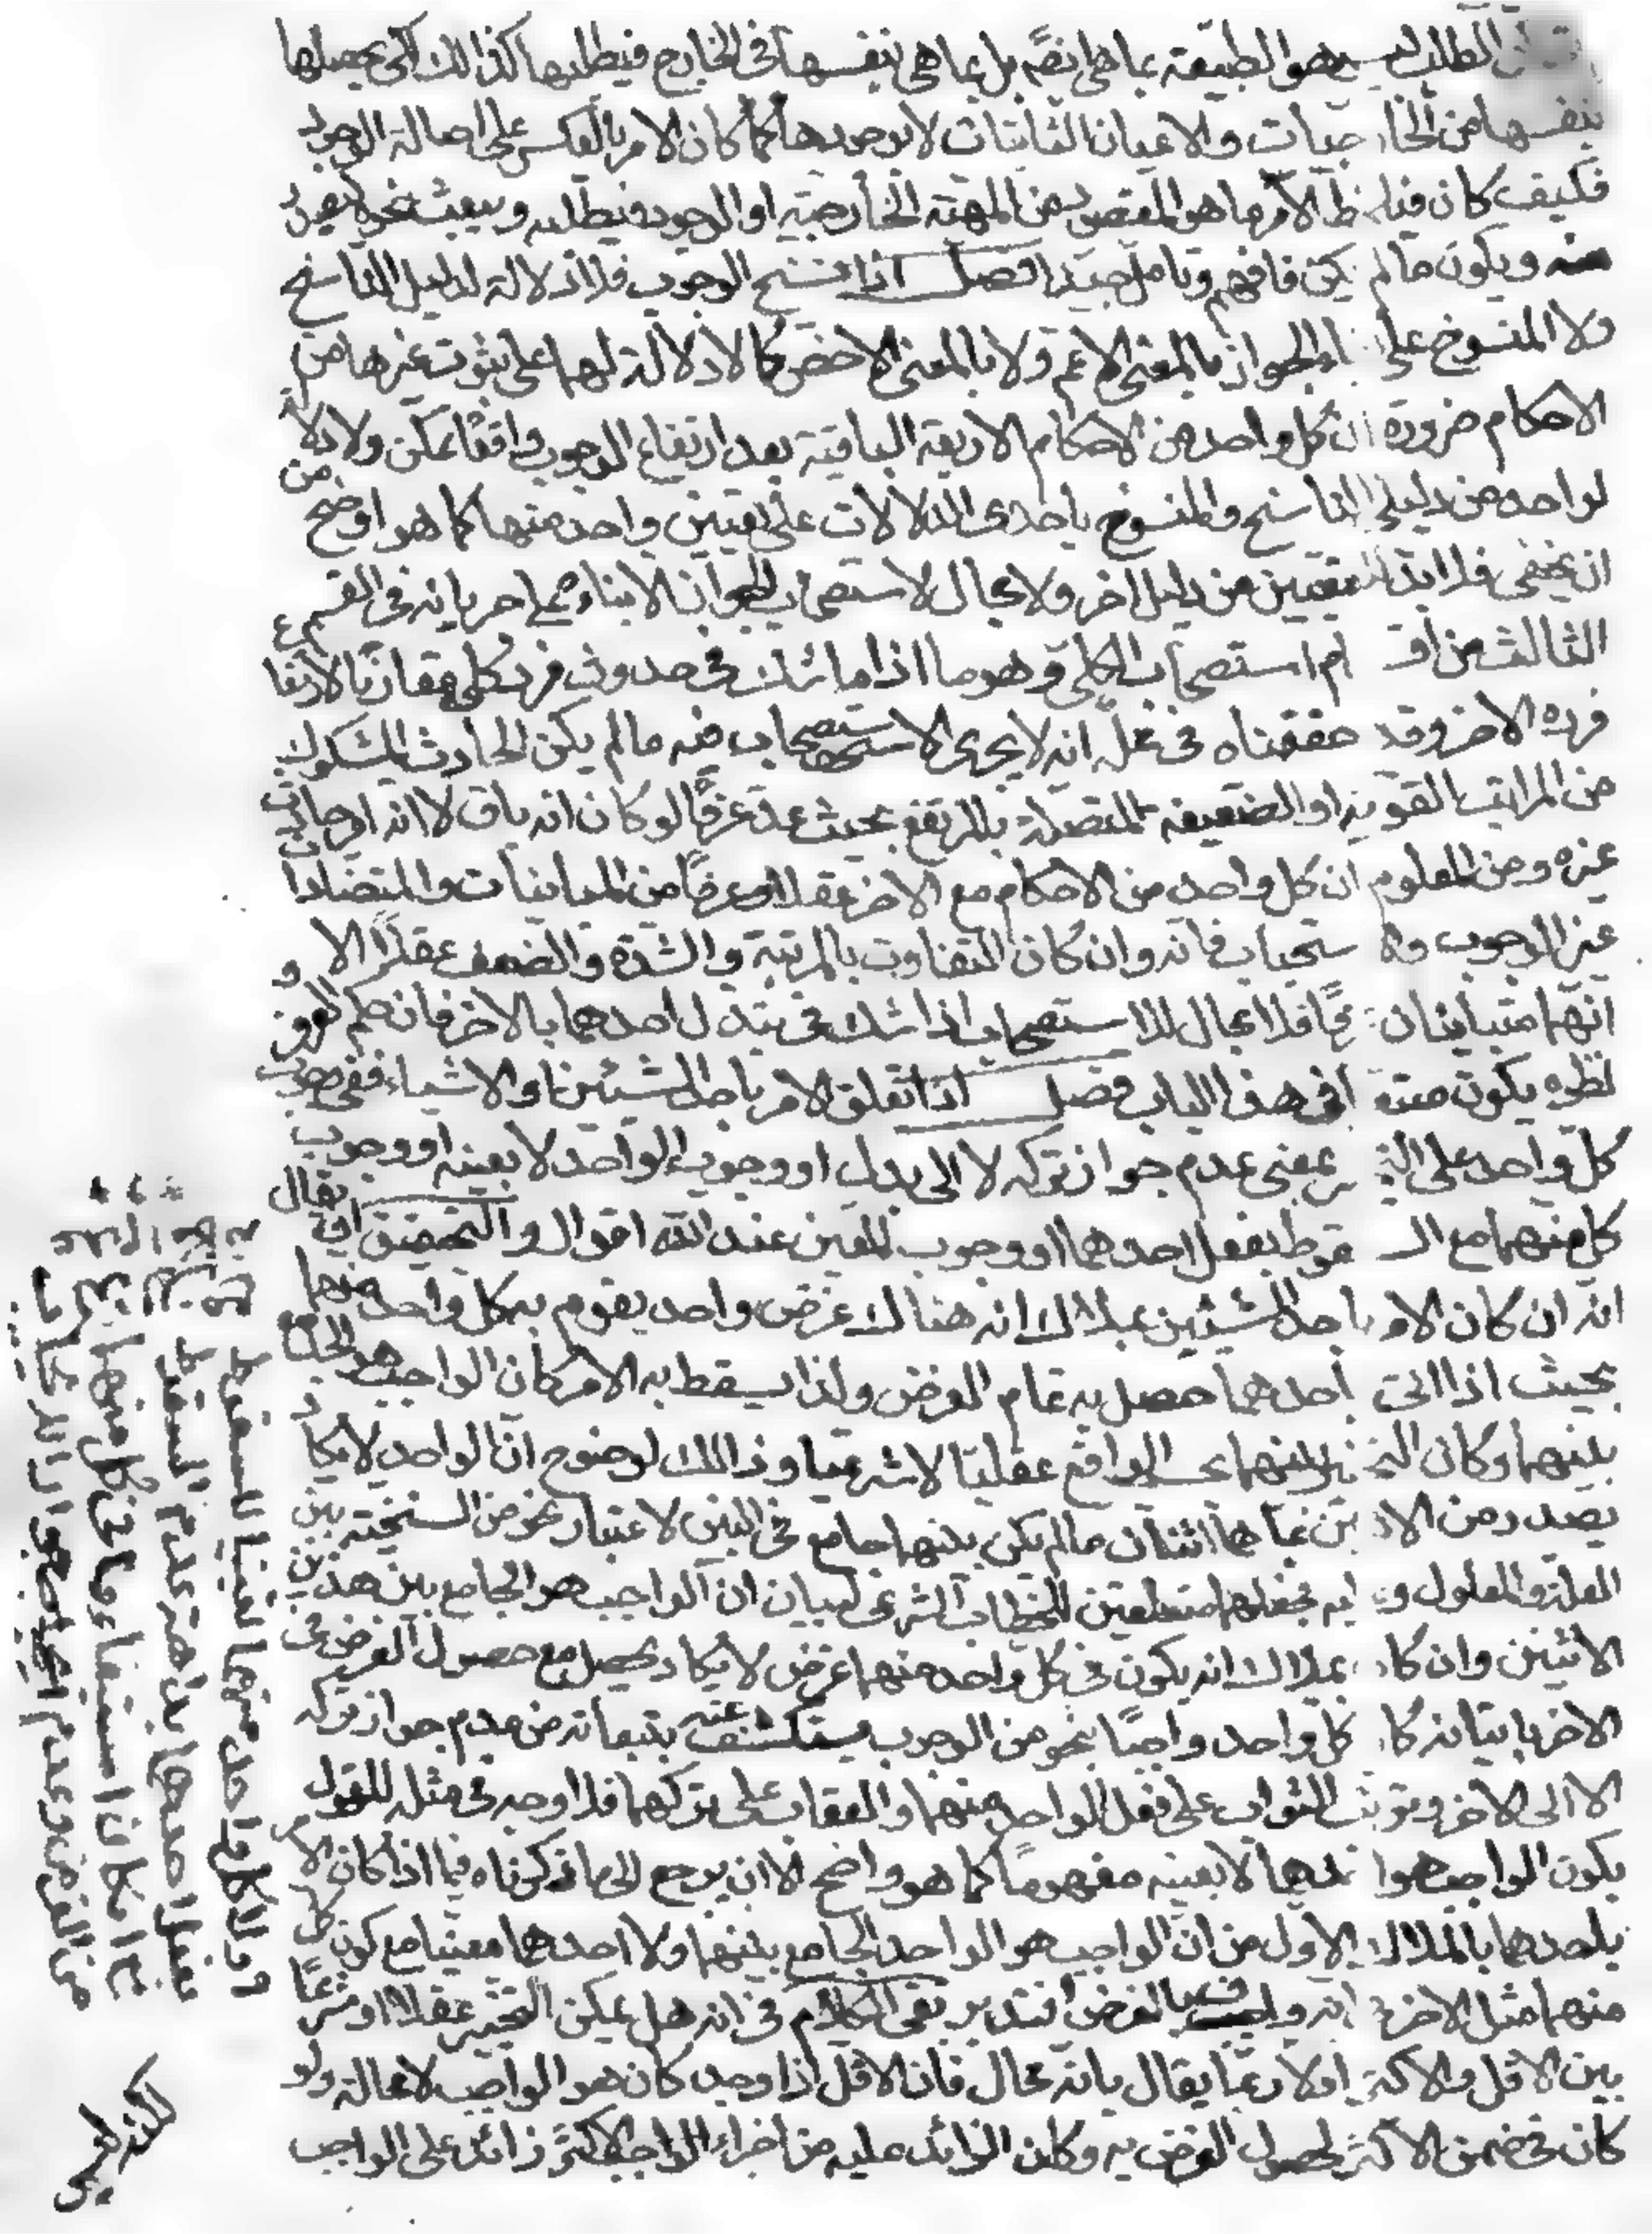 الطلب ليس هو الطبيعة بما هي ايضّ بل بما هي بنفسها فى الخارج فيطلبها كذالك لكى يحصلها
بنفسها من الخار جيات والاعيان الثابتات لا بوجودها كما كان الامر بالعكس على اصالة الوجود
فكيف كان فيلـ ـظ الآمر ما هو المقصود من المهيّة الخارجيّة او الوجود فيطلبه ويبعث نحوه ليصدر
منه ويكون ما لم يكن فافهم وتامل جيّدا فصل اذا نسخ الوجوب فلا دلالة لدليل الناسخ
ولا المنسوخ على بقاء الجواز بالمعنى الاعم ولا بالمعنى الاخصّ كما لا دلالة لهما على ثبوت غيرها من
الاحكام ضرورة ان كل واحد من الاحكام الاربعة الباقية بعد ارتفاع الوجوب واقعًا ممكن ولا دلالة
لواحد من دليلى الناسخ والمنسوخ باحدى الدلالات على تعيين واحد منها كما هو اوضح من
ان يخفى فلا بدّ للتعيين من دليل اخر ولا مجال لاستصحاب الجواز الا بناء على جريانه فى القسم
الثالث من اقـ ـام استصحاب الكلى وهو ما اذا ما شك فى حدوث فرد كلى مقارنًا لارتفاع
فرده الاخر وقد حققناه فى محلّه انه لا يجرى الاستصحاب فيه ما لم يكن الحادث المشكوك
من المراتب القوية او الضعيفة المتصلة بالمرتفع بحيث عدّ عرفًا لو كان انه باق لا انه امر حادث
غيره ومن المعلوم ان كل واحد من الاحكام مع الاخر عقلا او عرفًا من المباينات والمتضادات
غير الوجوب والا ستحباب فانه وان كان التفاوت بالمرتبة والشدة والضعف عقلًا الا
انهما متباينان عرفًا فلا مجال للاستصحاب اذا شك فى تبدل احدهما بالاخر فان حكم العرف و
نظره يكون متبعا فى هذا الباب فصل اذا تعلق الامر باحد الشيئين او الاشياء ففى وجوب
كل واحد على التخيير بمعنى عدم جواز تركه لا الى بدل او وجوب الواحد لا بعينه او وجوب
كل منهما مع السـ ـقوط بفعل احدهما او وجوب المعين عند الله اقوال والتحقيق ان يقال
انه ان كان الامر باحد الشيئين بملاك انه هناك غرض واحد يقوم به كل واحد منهما
بحيث اذا اتى باحدهما حصل به تمام الغرض ولذا يسقط به الامر كان الواجب هو الجامع
بينهما وكان التخيير بينهما بحسب الواقع عقليّا لا شرعيا وذالك لوضوح ان الواحد لا يكاد
يصدر من الاثنين بما هما اثنان ما لم يكن بينهما جامع فى البين لاعتبار نحو من السنخيّة بين
العلة والمعلول وعليه فجعلهما متعلقين للخطاب الشرعى لبيان ان الواجب هو الجامع بين هذين
الاثنين وان كان بملاك انه يكون فى كل واحد منهما غرض لا يكاد يحصل مع حصول الغرض فى
الاخر باتيانه كان كل واحد واجبًا بنحو من الوجوب يستكشف عنه بتبعاته من عدم جواز تركه
الا الى الاخر وترتب الثواب على فعل الواحد منهما والعقاب على تركهما فلا وجه فى مثله للقول
يكون الواجب هو احدهما لا بعينه مفهومًا كما هو واضح الا ان يرجع الى ما ذكرناه فيما اذا كان الامر
باحدهما بالملاك الاول من ان الواجب هو الواحد الجامع بينهما ولا احدهما معينا مع كون كل
منهما مثل الاخر فى انه واف بالغرض فتدبر بقى الكلام فى انه هل يمكن التخيير عقلا او شرعًا
بين الاقل والاكثر او لا ربما يقال بانه محال فان الاقل اذا وجد كان هو الواجب لا محالة ولو
كان فى ضمن الاكثر لحصول الغرض به وكان الزائد عليه من اجزاء الواجب الاكثر زائد على الواجب
ولا كل واحد منهما تعيّنا للسقوط
بفعل احدهما بداهة عدم السقوط
مع امكان استيفاء ما فى كل منهما
من الغرض وعدم ايجابهما
لكنه